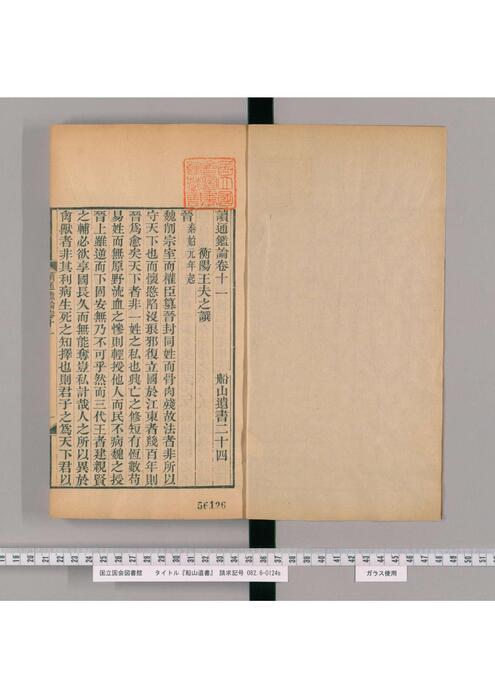 讀通鑑論卷十一
船山遺書二十四
衡陽王夫之譔
晉 泰始元年起
魏削宗室而權臣篡晉封同姓而骨肉殘故法者非所以
守天下也而懷愍陷沒琅邪復立國於江東者幾百年則
晉爲愈矣天下者非一姓之私也興亡之修短有恆數苟
易姓而無原野流血之慘則輕授他人而民不病魏之授
晉上雖逆而下固安無乃不可乎然而三代王者建親賢
之輔必欲享國長久而無能奪豈私計哉人之所以異於
禽獸者非其利病生死之知擇也則君子之爲天下君以
56126
国立国会図書館 タイトル『船山遺書』 請求記号 082.6-0124s
ガラス使用